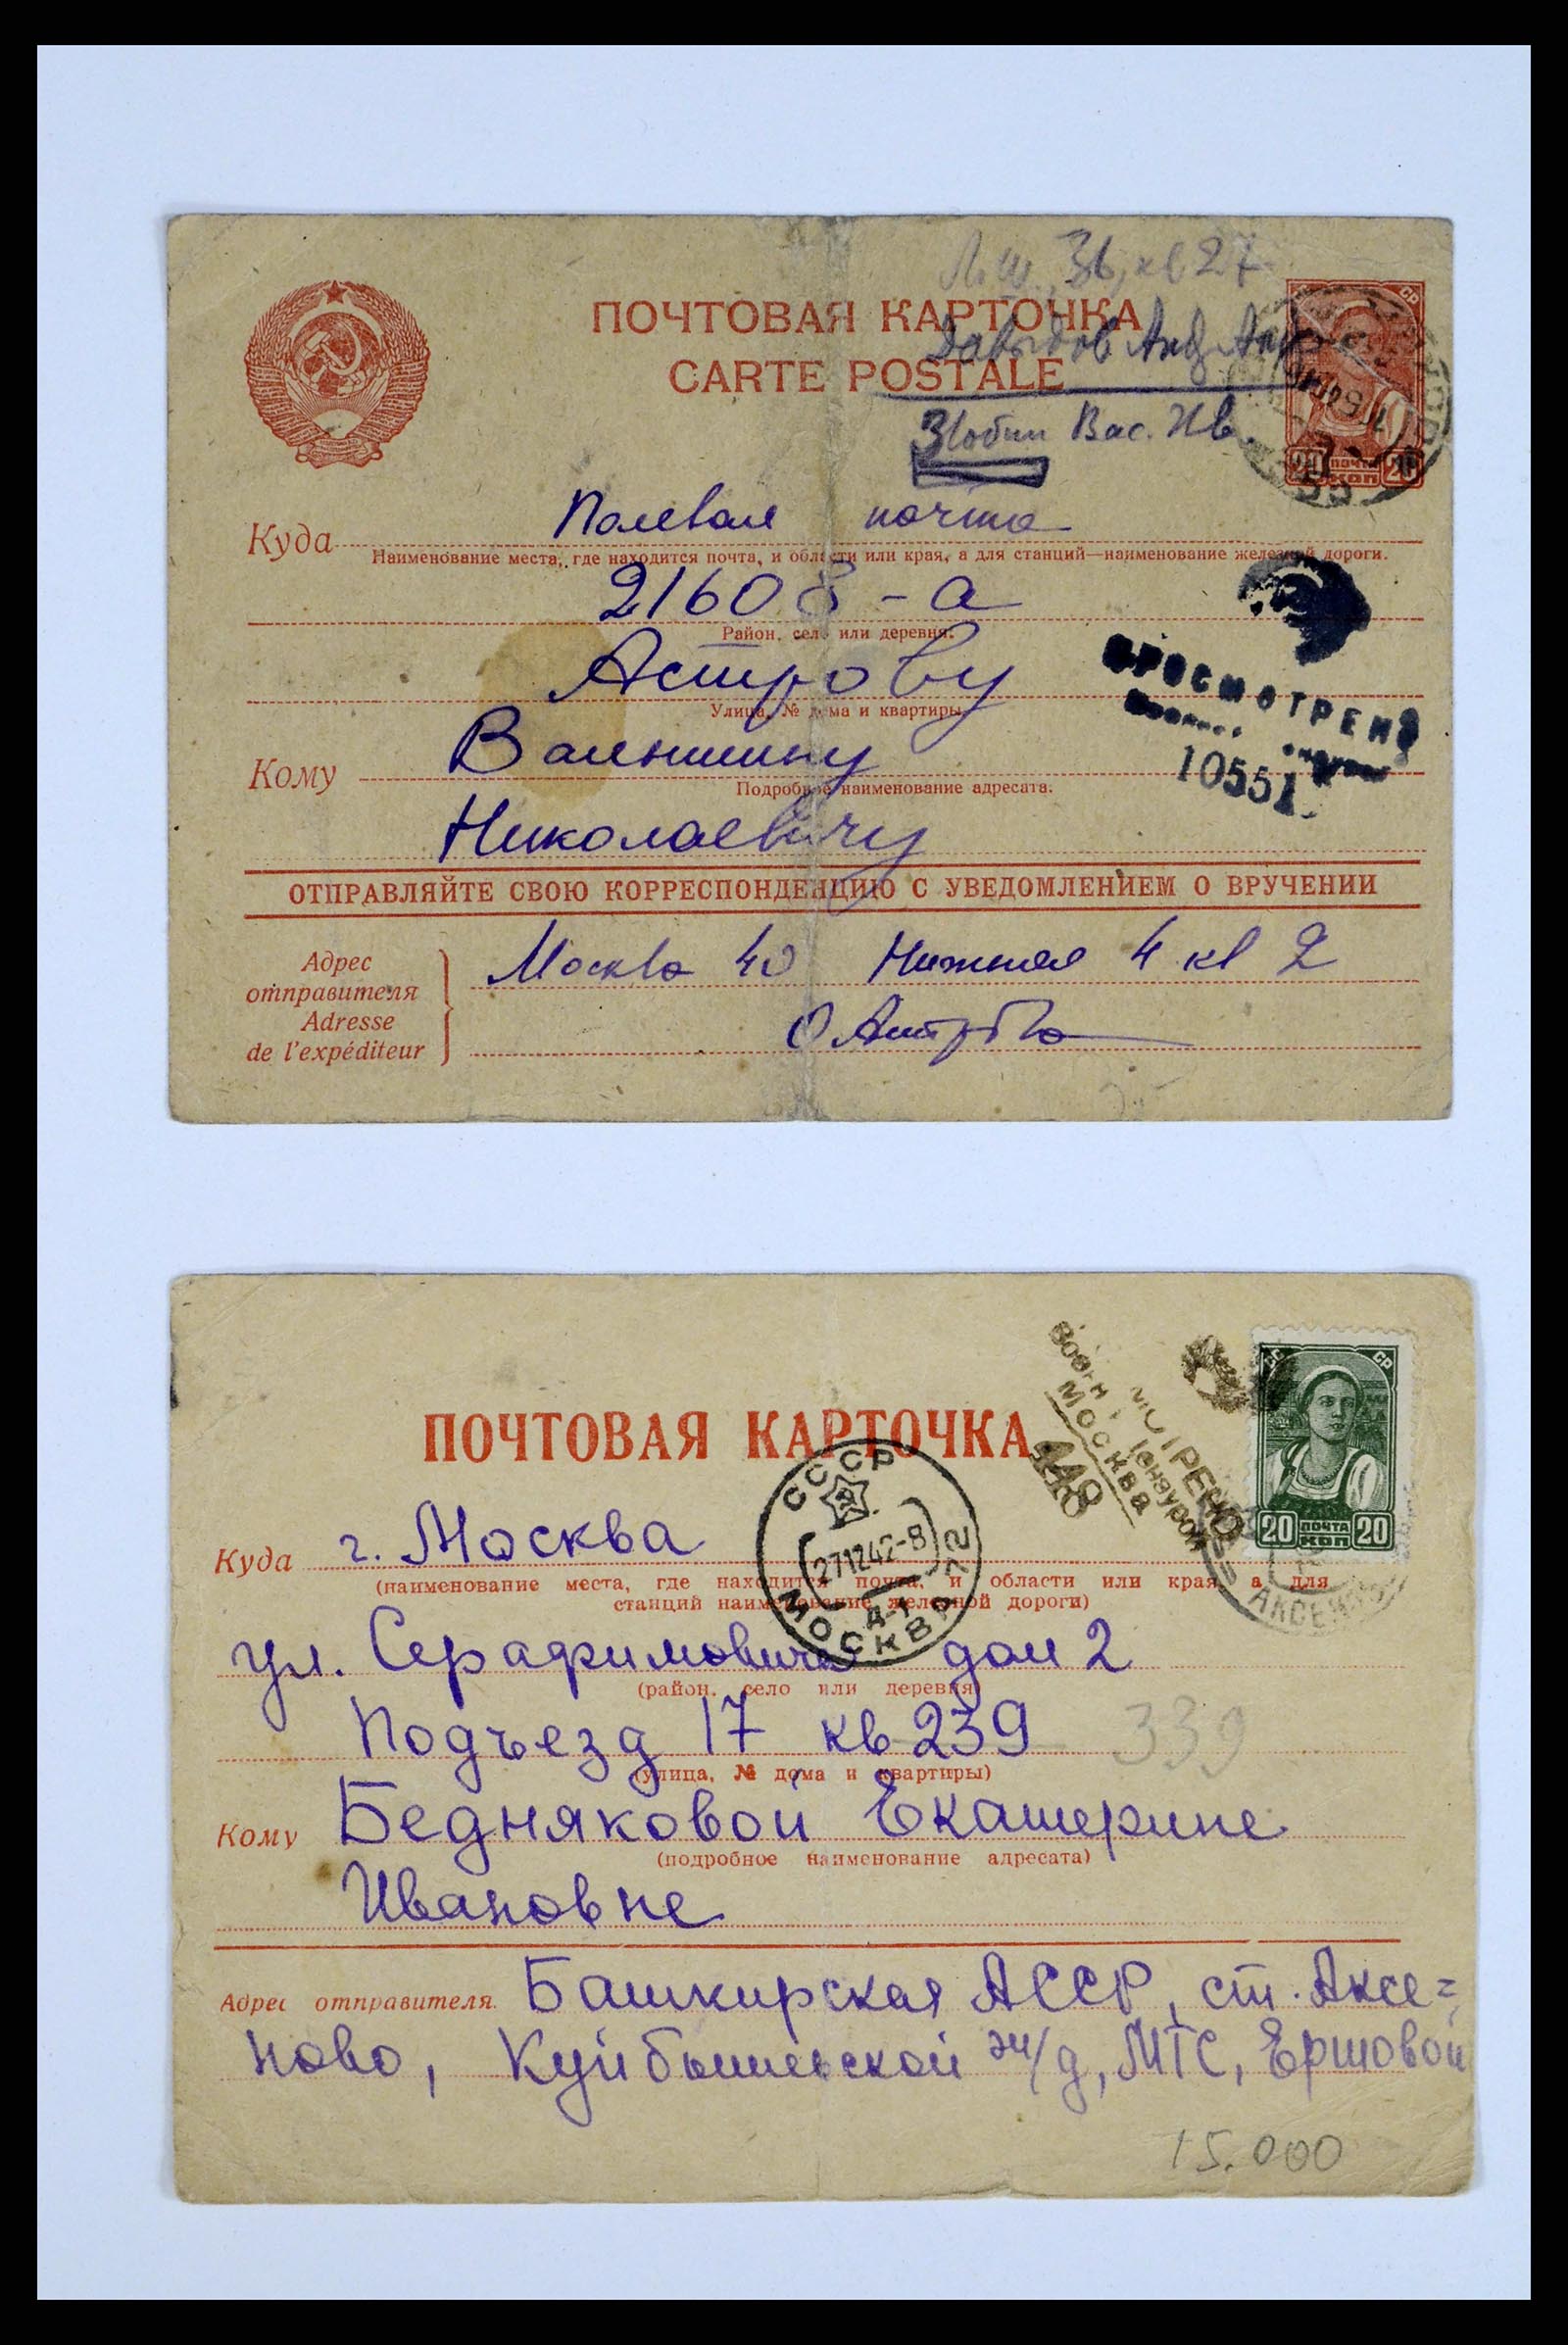 Л.Ш. 36, кв 27
ПОЧТОВАЯ КАРТОЧКА
Давыдов
CARTE POSTALE
Злобин Вас. Ив.
СР
20 ПОЧТА 20
КОП
Куда Полевая почта
Наименование места, где находится почта, и области или края, а для станций—наименование железной дороги.
21608-а
Район, село или деревня.
Астрову
Улица, № дома и квартиры.
ПРОСМОТРЕНО
10551
Кому Валентину
Подробное наименование адресата.
Николаевичу
ОТПРАВЛЯЙТЕ СВОЮ КОРРЕСПОНДЕНЦИЮ С УВЕДОМЛЕНИЕМ О ВРУЧЕНИИ
Адрес
отправителя
Adresse
de l'expéditeur
Москва 40 Нижняя 4 кв 2
О Астрова
МОСКВА
440
СС СР
20 ПОЧТА 20
КОП
ПОЧТОВАЯ КАРТОЧКА
СССР
271242-8
Д-1
МОСКВА
Куда г. Москва
(наименование места, где находится почта, и области или края, а для
станций наименование железной дороги)
ул. Серафимовича дом 2
(район, село или деревня)
Подъезд 17 кв 239 339
(улица, № дома и квартиры)
Кому Бедняковой Екатерине
(подробное наименование адресата)
Ивановне
Адрес отправителя Башкирская АССР, ст. Аксе=
ново, Куйбышевской ж/д, МТС, Ершовой
15.000